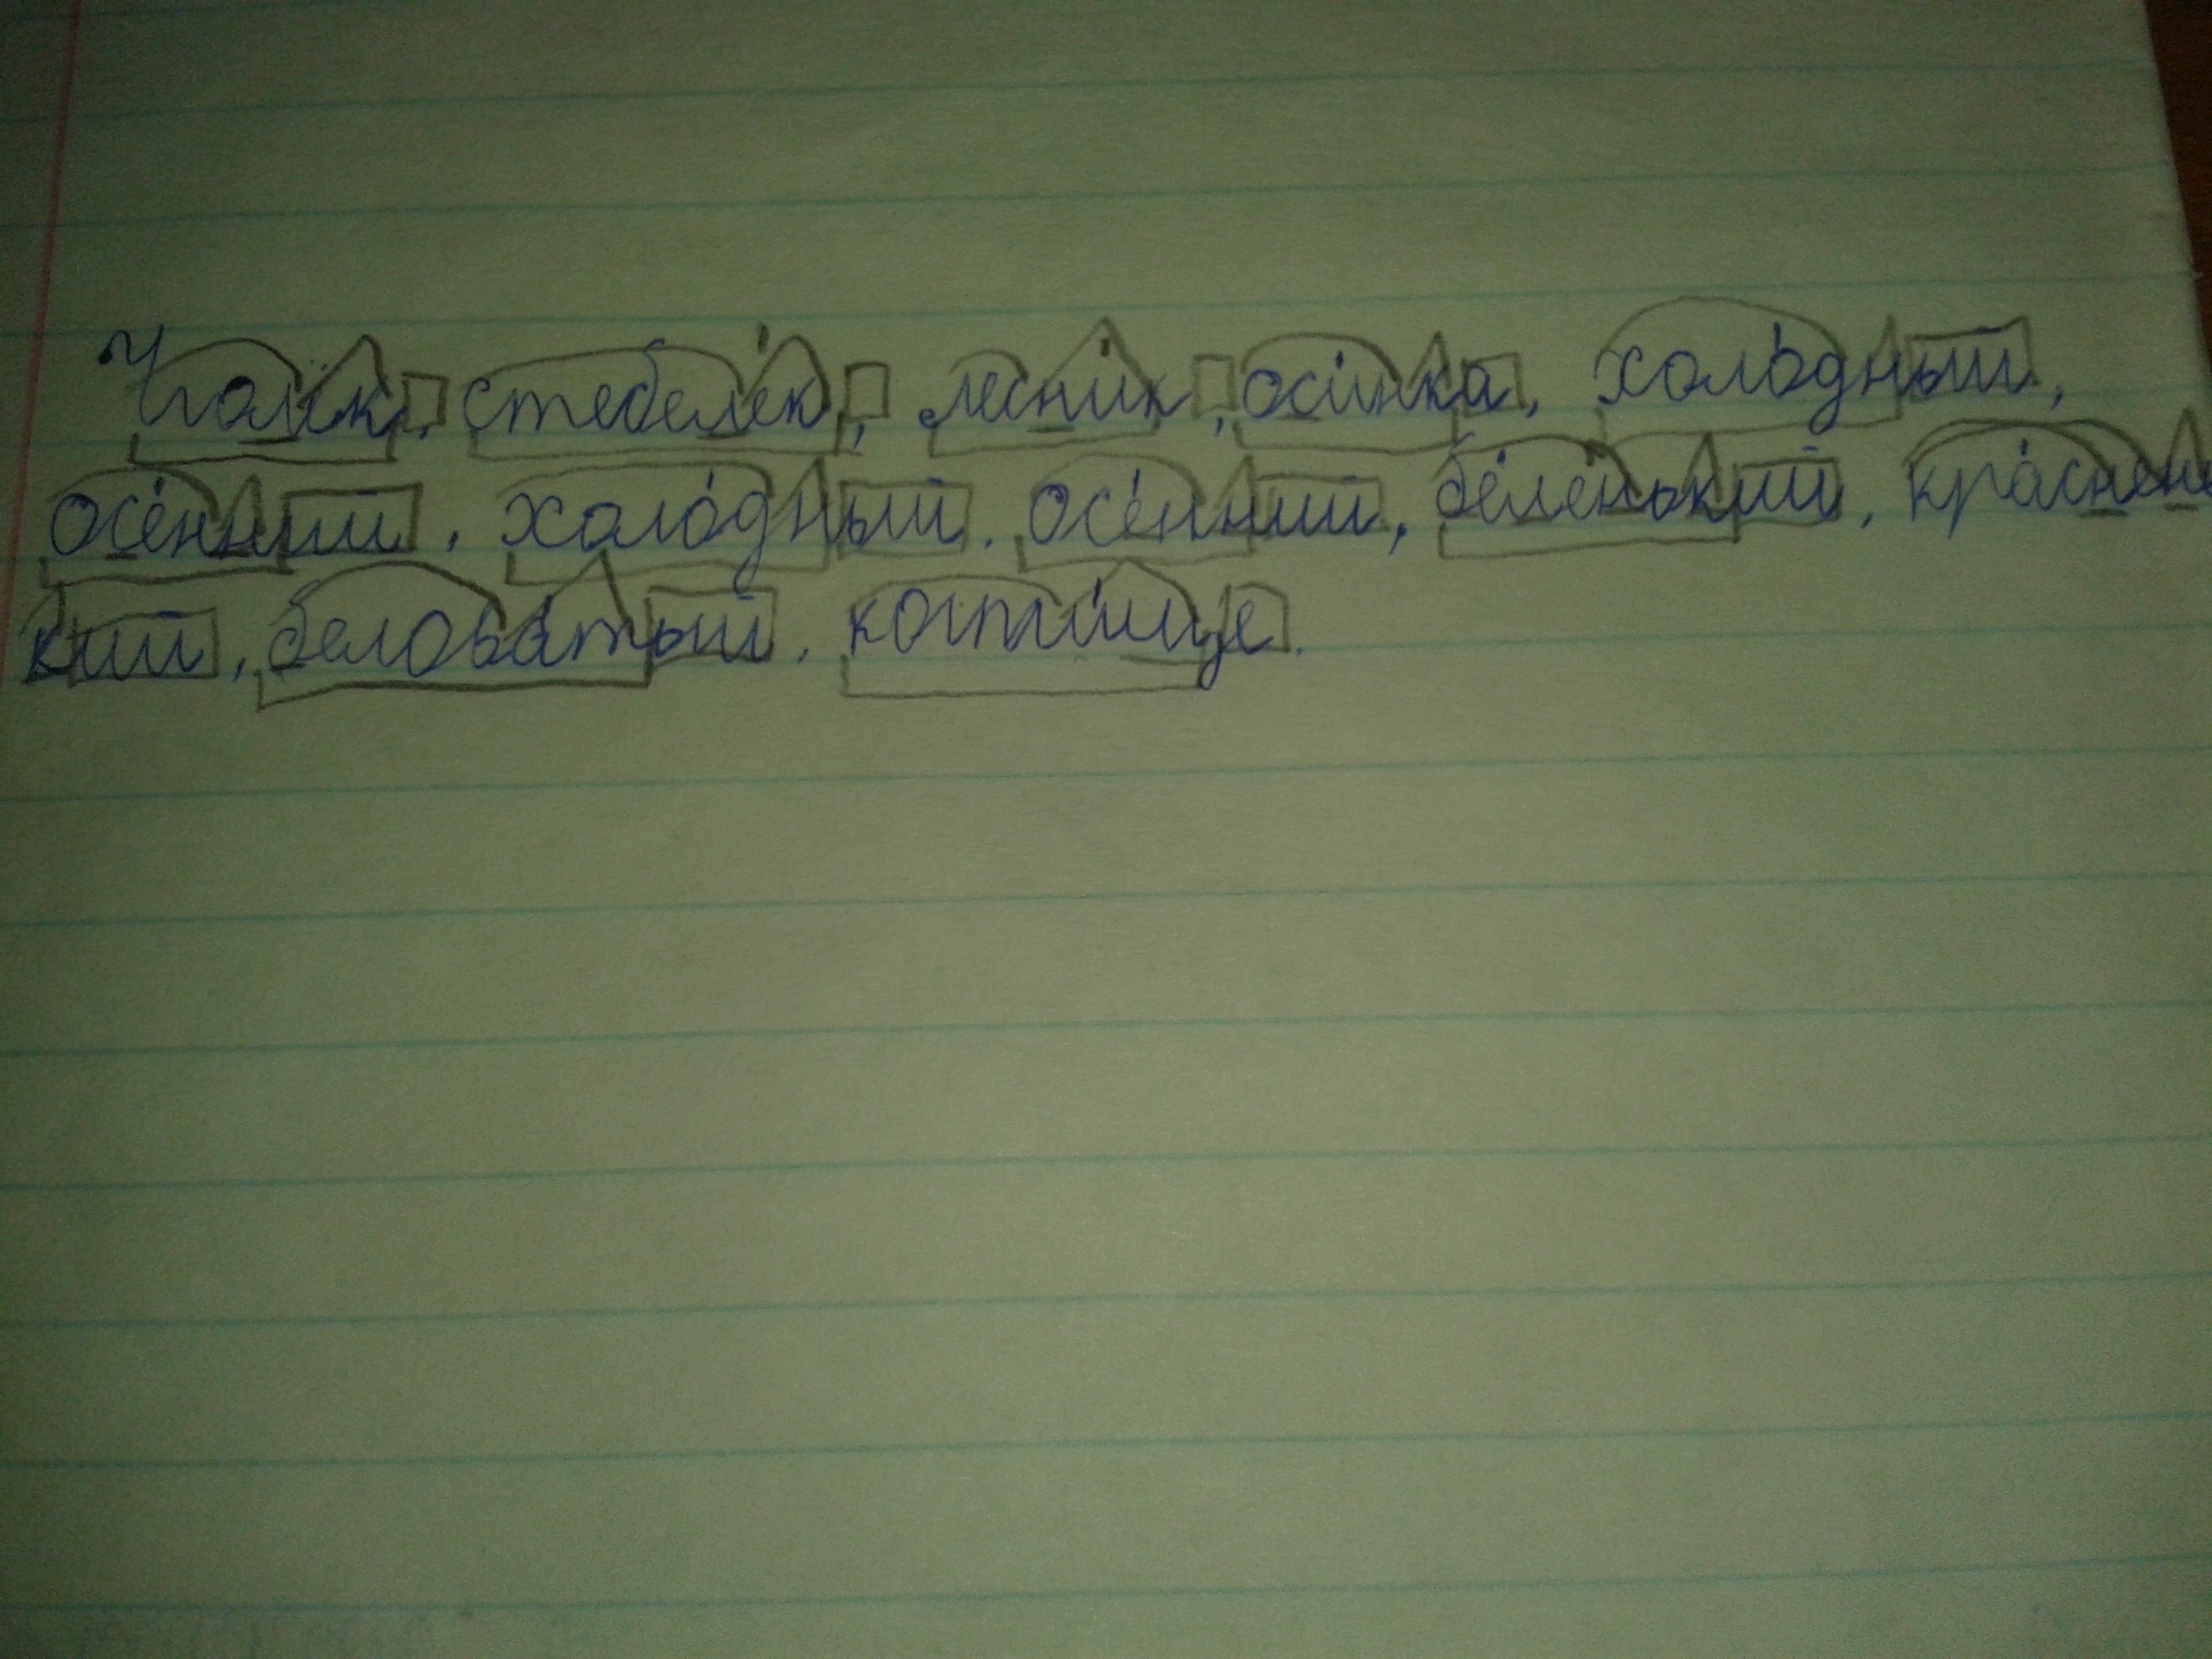 стебелёк, лесник, осинка, холодный,
осенний, холодный, осенний, беленький, краснень
кий, беловатый, когтище.